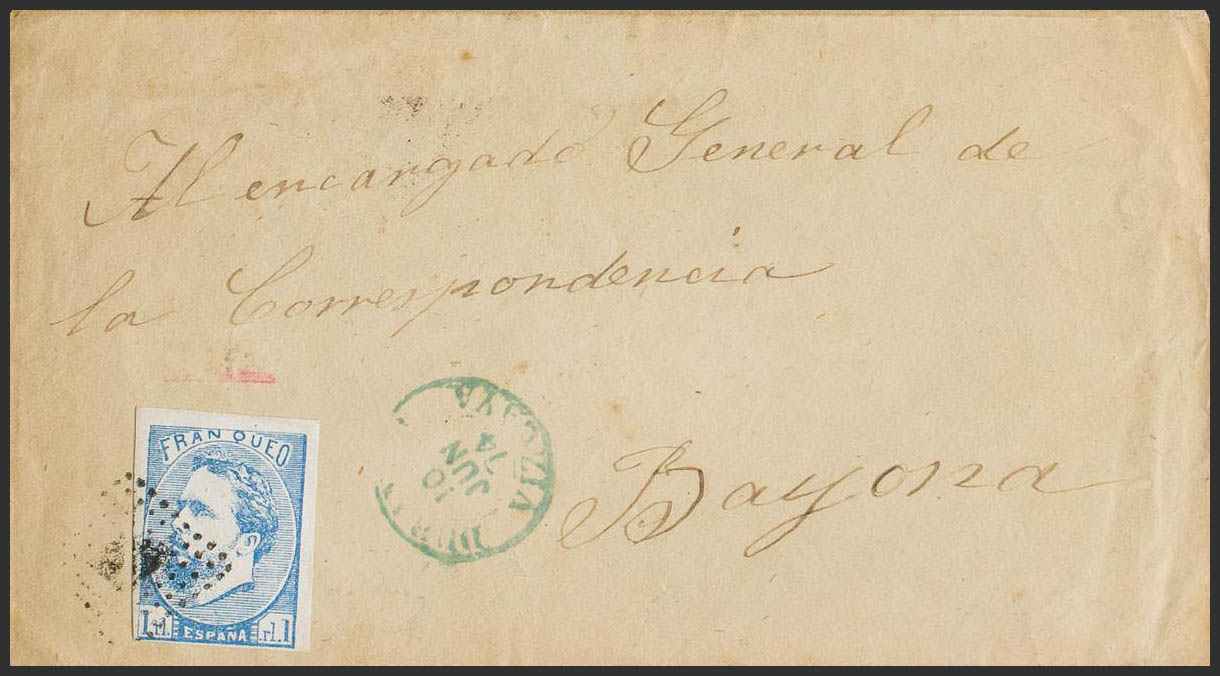 Al encargado General de
la Correspondencia
Bayona
FRANQUEO
1 rl. ESPAÑA rl. 1
VIZCAYA
10
JUN
74